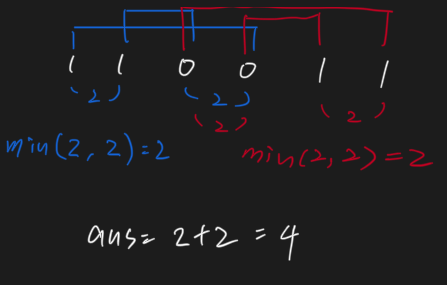 1 1 0 0 1 1
(2) (2)
(2) (2)
min(2, 2)=2 min(2, 2)=2
ans= 2+2 = 4